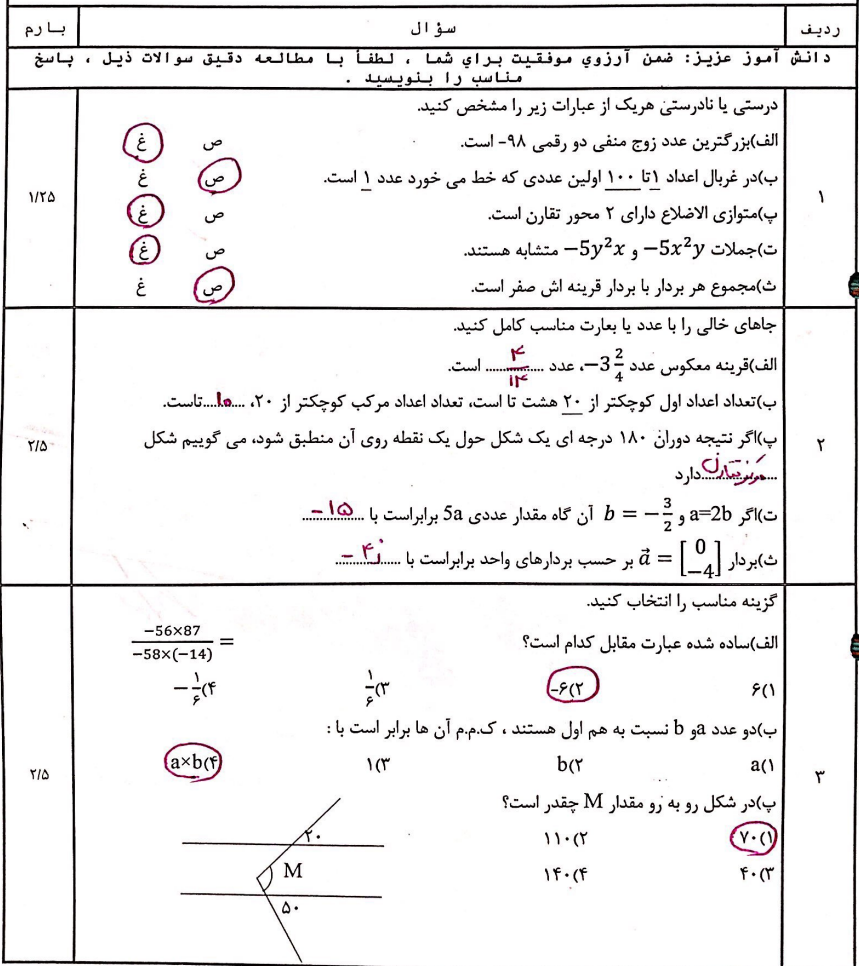 ردیف سؤال بارم
دانش آموز عزیز: ضمن آرزوي موفقیت براي شما ، لطفاً با مطالعه دقیق سوالات ذیل ، پاسخ
مناسب را بنویسید .
۱ درستی یا نادرستی هریک از عبارات زیر را مشخص کنید. ۱/۲۵
الف)بزرگترین عدد زوج منفی دو رقمی ۹۸- است. ص غ
ب)در غربال اعداد ۱تا ۱۰۰ اولین عددی که خط می خورد عدد ۱ است. ص غ
پ)متوازی الاضلاع دارای ۲ محور تقارن است. ص غ
ت)جملات −5x²y و −5y²x متشابه هستند. ص غ
ث)مجموع هر بردار با بردار قرینه اش صفر است. ص غ
۲ جاهای خالی را با عدد یا بعارت مناسب کامل کنید. ۲/۵
الف)قرینه معکوس عدد −3 2/4، عدد ...۴/۱۴... است.
ب)تعداد اعداد اول کوچکتر از ۲۰ هشت تا است، تعداد اعداد مرکب کوچکتر از ۲۰، ...۱۰...تاست.
پ)اگر نتیجه دوران ۱۸۰ درجه ای یک شکل حول یک نقطه روی آن منطبق شود، می گوییم شکل
...مرکز تقارن...دارد
ت)اگر a=2b و b = −3/2 آن گاه مقدار عددی 5a برابراست با ...−۱۵...
ث)بردار a⃗ = [0 −4] بر حسب بردارهای واحد برابراست با ...−۴j...
۳ گزینه مناسب را انتخاب کنید. ۲/۵
الف)ساده شده عبارت مقابل کدام است؟ −56×87/−58×(−14) =
۱)۶ ۲)۶- ۳)۱/۶ ۴)−۱/۶
ب)دو عدد aو b نسبت به هم اول هستند ، ک.م.م آن ها برابر است با :
۱)a ۲)b ۳)۱ ۴)a×b
پ)در شکل رو به رو مقدار M چقدر است؟
۱)۷۰ ۲)۱۱۰
۳)۴۰ ۴)۱۴۰
۲۰
M
۵۰